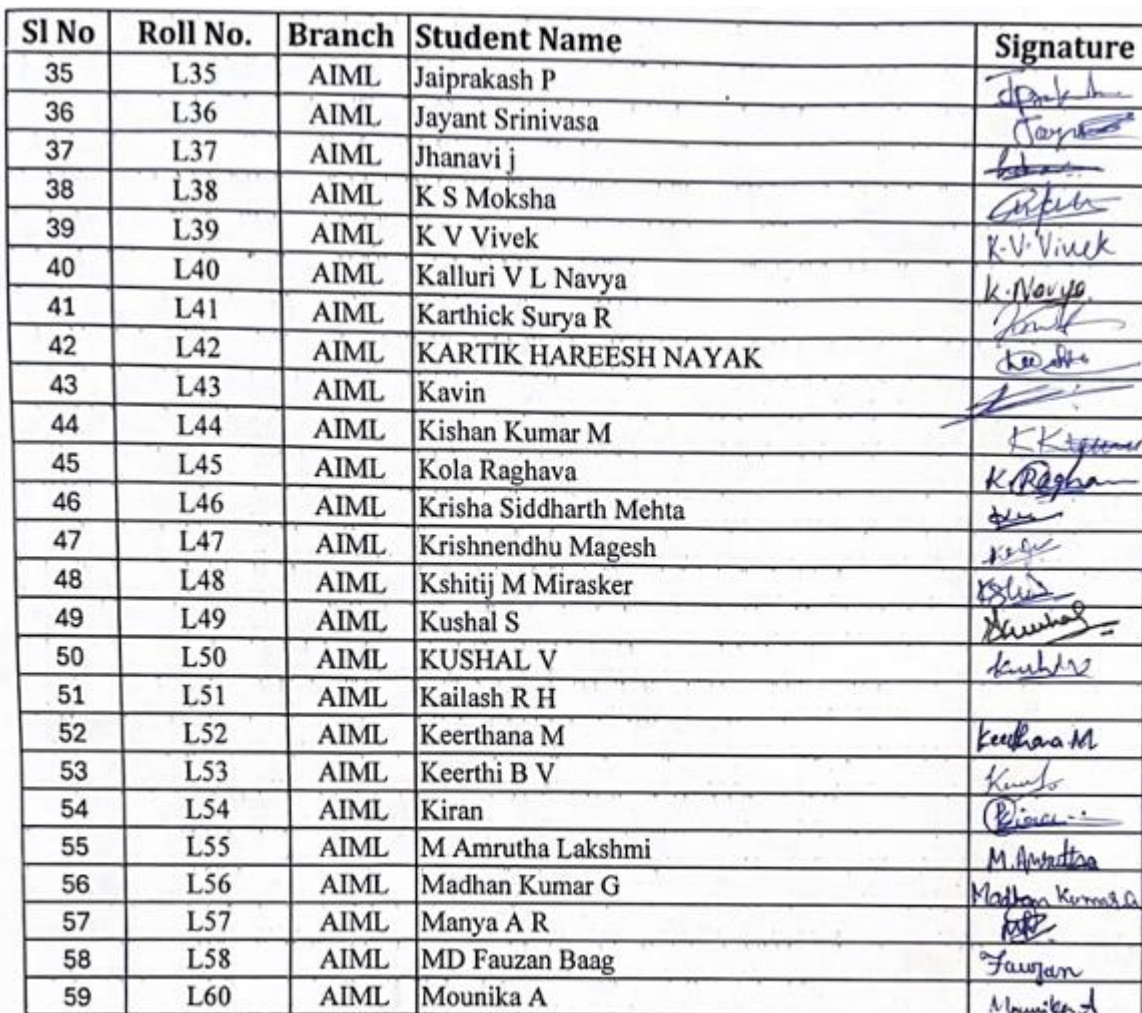 Sl No Roll No. Branch Student Name Signature
35 L35 AIML Jaiprakash P
36 L36 AIML Jayant Srinivasa
37 L37 AIML Jhanavi j
38 L38 AIML K S Moksha
39 L39 AIML K V Vivek K.V.Vivek
40 L40 AIML Kalluri V L Navya K.Navya
41 L41 AIML Karthick Surya R
42 L42 AIML KARTIK HAREESH NAYAK
43 L43 AIML Kavin
44 L44 AIML Kishan Kumar M
45 L45 AIML Kola Raghava
46 L46 AIML Krisha Siddharth Mehta
47 L47 AIML Krishnendhu Magesh
48 L48 AIML Kshitij M Mirasker
49 L49 AIML Kushal S
50 L50 AIML KUSHAL V
51 L51 AIML Kailash R H
52 L52 AIML Keerthana M
53 L53 AIML Keerthi B V
54 L54 AIML Kiran
55 L55 AIML M Amrutha Lakshmi
56 L56 AIML Madhan Kumar G Madhan Kumar G
57 L57 AIML Manya A R
58 L58 AIML MD Fauzan Baag Fauzan
59 L60 AIML Mounika A Mounika A